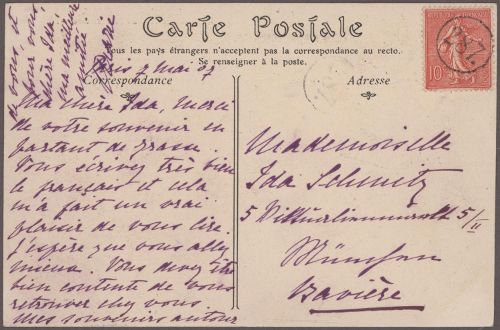 Carte Postale
Tous les pays étrangers n'acceptent pas la correspondance au recto.
Se renseigner à la poste.
Correspondance
Adresse
Paris 2 Mai 07
Ma chère Ida, merci
de votre souvenir en
partant de Grasse.
Vous écrivez très bien
le français et cela
m'a fait un vrai
plaisir de vous lire.
J'espère que vous allez
mieux. Vous devez être
bien contente de vous
retrouver chez vous.
Mes souvenirs autour
de vous, et
pour vous,
chère Ida,
ma meilleure
amitié
Mademoiselle
Ida Schmitz
5 5/II
München
Bavière
10